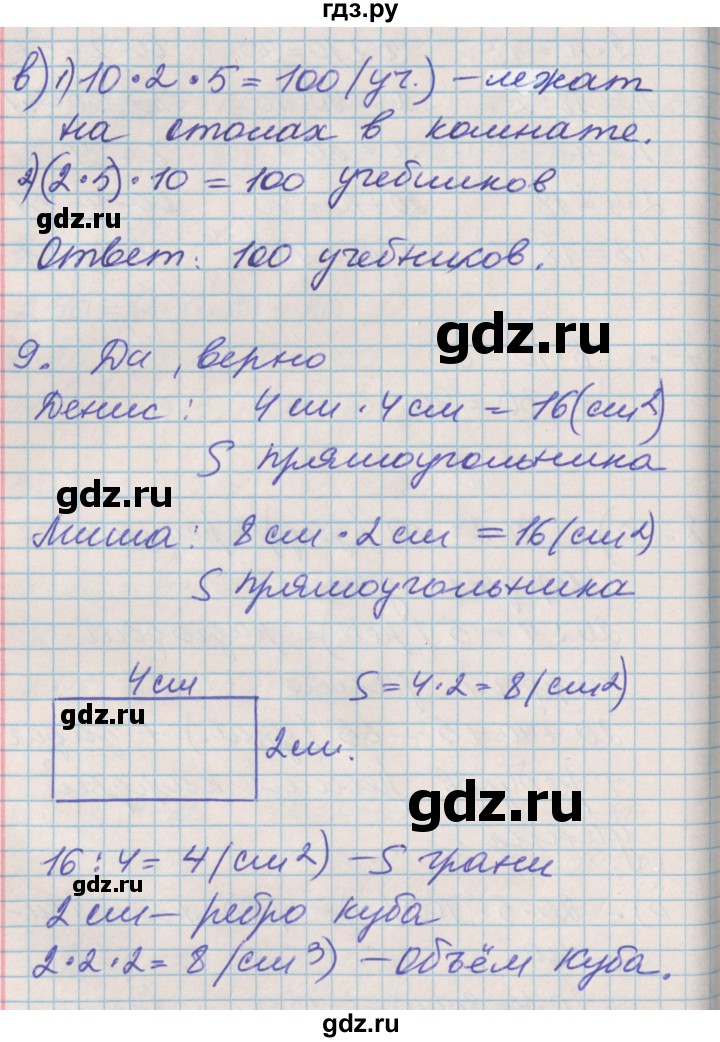 гдз.ру
в) 1) 10 · 2 · 5 = 100 (уч.) – лежат
на столах в комнате.
2) (2 · 5) · 10 = 100 учебников
gdz.ru
Ответ: 100 учебников.
gdz.ru
9. Да, верно
Денис: 4 см · 4 см = 16 (см2)
S прямоугольника
gdz.ru
Миша: 8 см · 2 см = 16 (см2)
S прямоугольника
4 см
S = 4 · 2 = 8 (см2)
gdz.ru
2 см.
gdz.ru
16 : 4 = 4 (см2) – S грани
gdz.ru
2 см – ребро куба
2 · 2 · 2 = 8 (см3) – Объём куба.
gdz.ru